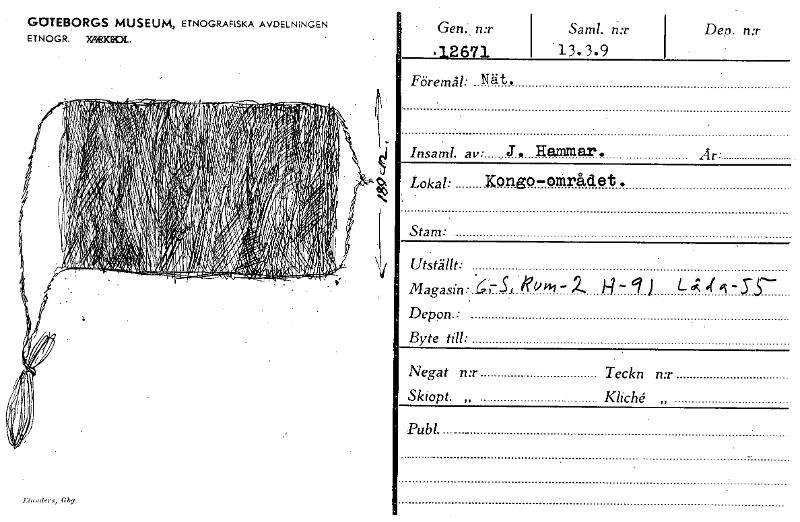 GÖTEBORGS MUSEUM, ETNOGRAFISKA AVDELNINGEN
ETNOGR.
180 cm.
Elanders, Gbg
Gen. n:r Saml. n:r Dep. n:r
12671 13.3.9
Föremål: Nät.
Insaml. av: J. Hammar. År:
Lokal: Kongo-området.
Stam:
Utställt:
Magasin: G-S, Rum-2 H-91 Låda-55
Depon.:
Byte till:
Negat n:r Teckn n:r
Skiopt. „ Kliché „
Publ.